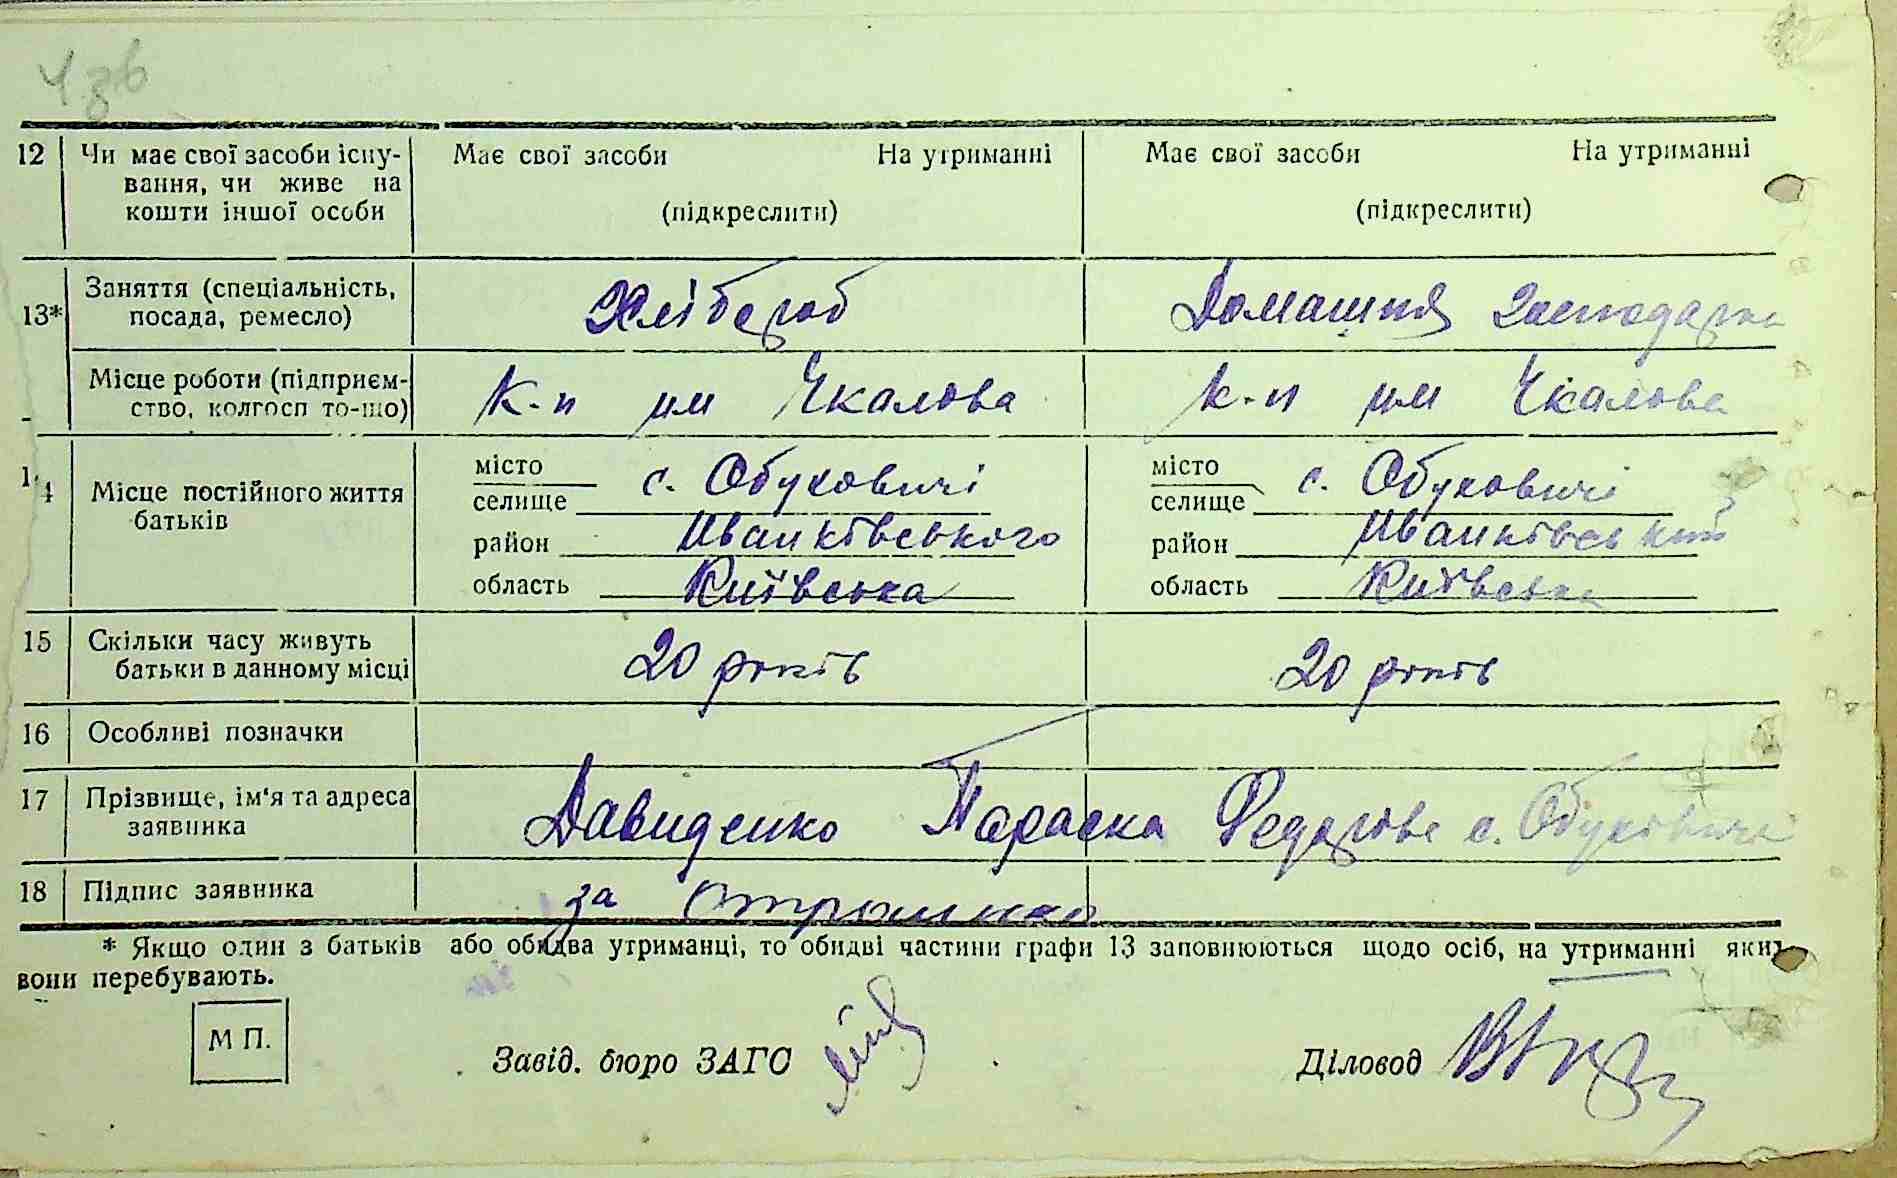 4 зв
12 Чи має свої засоби існу- Має свої засоби На утриманні Має свої засоби На утриманні
вання, чи живе на
кошти іншої особи (підкреслити) (підкреслити)
13* Заняття (спеціальність, Хлібороб Домашня господарка
посада, ремесло)
Місце роботи (підприєм- К-п им Чкалова К-п им Чкалова
ство, колгосп то-що)
14 Місце постійного життя місто с. Обуховичі місто с. Обуховичі
батьків селище селище
район Иванківського район Иванківський
область Київська область Київська
15 Скільки часу живуть 20 років 20 років
батьки в данному місці
16 Особливі позначки
17 Прізвище, ім'я та адреса Давиденко Параска Федорове с. Обуховичі
заявника
18 Підпис заявника за
* Якщо один з батьків або обидва утриманці, то обидві частини графи 13 заповнюються щодо осіб, на утриманні яких
вони перебувають.
М П.
Завід. бюро ЗАГС Діловод